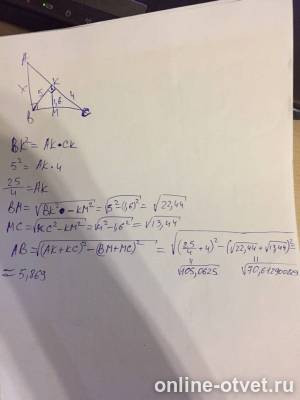 A
K
X
5
4
1,6
B
M
C
BK² = AK·CK
5² = AK·4
25/4 = AK
BM = √BK² - KM² = √5² - (1,6)² = √22,44
MC = √KC² - KM² = √4² - 1,6² = √13,44
AB = √(AK+KC)² - (BM+MC)² = √(25/4 + 4)² - (√22,44 + √13,44)² =
√105,0625 √70,612900809
≈ 5,869
online-otvet.ru